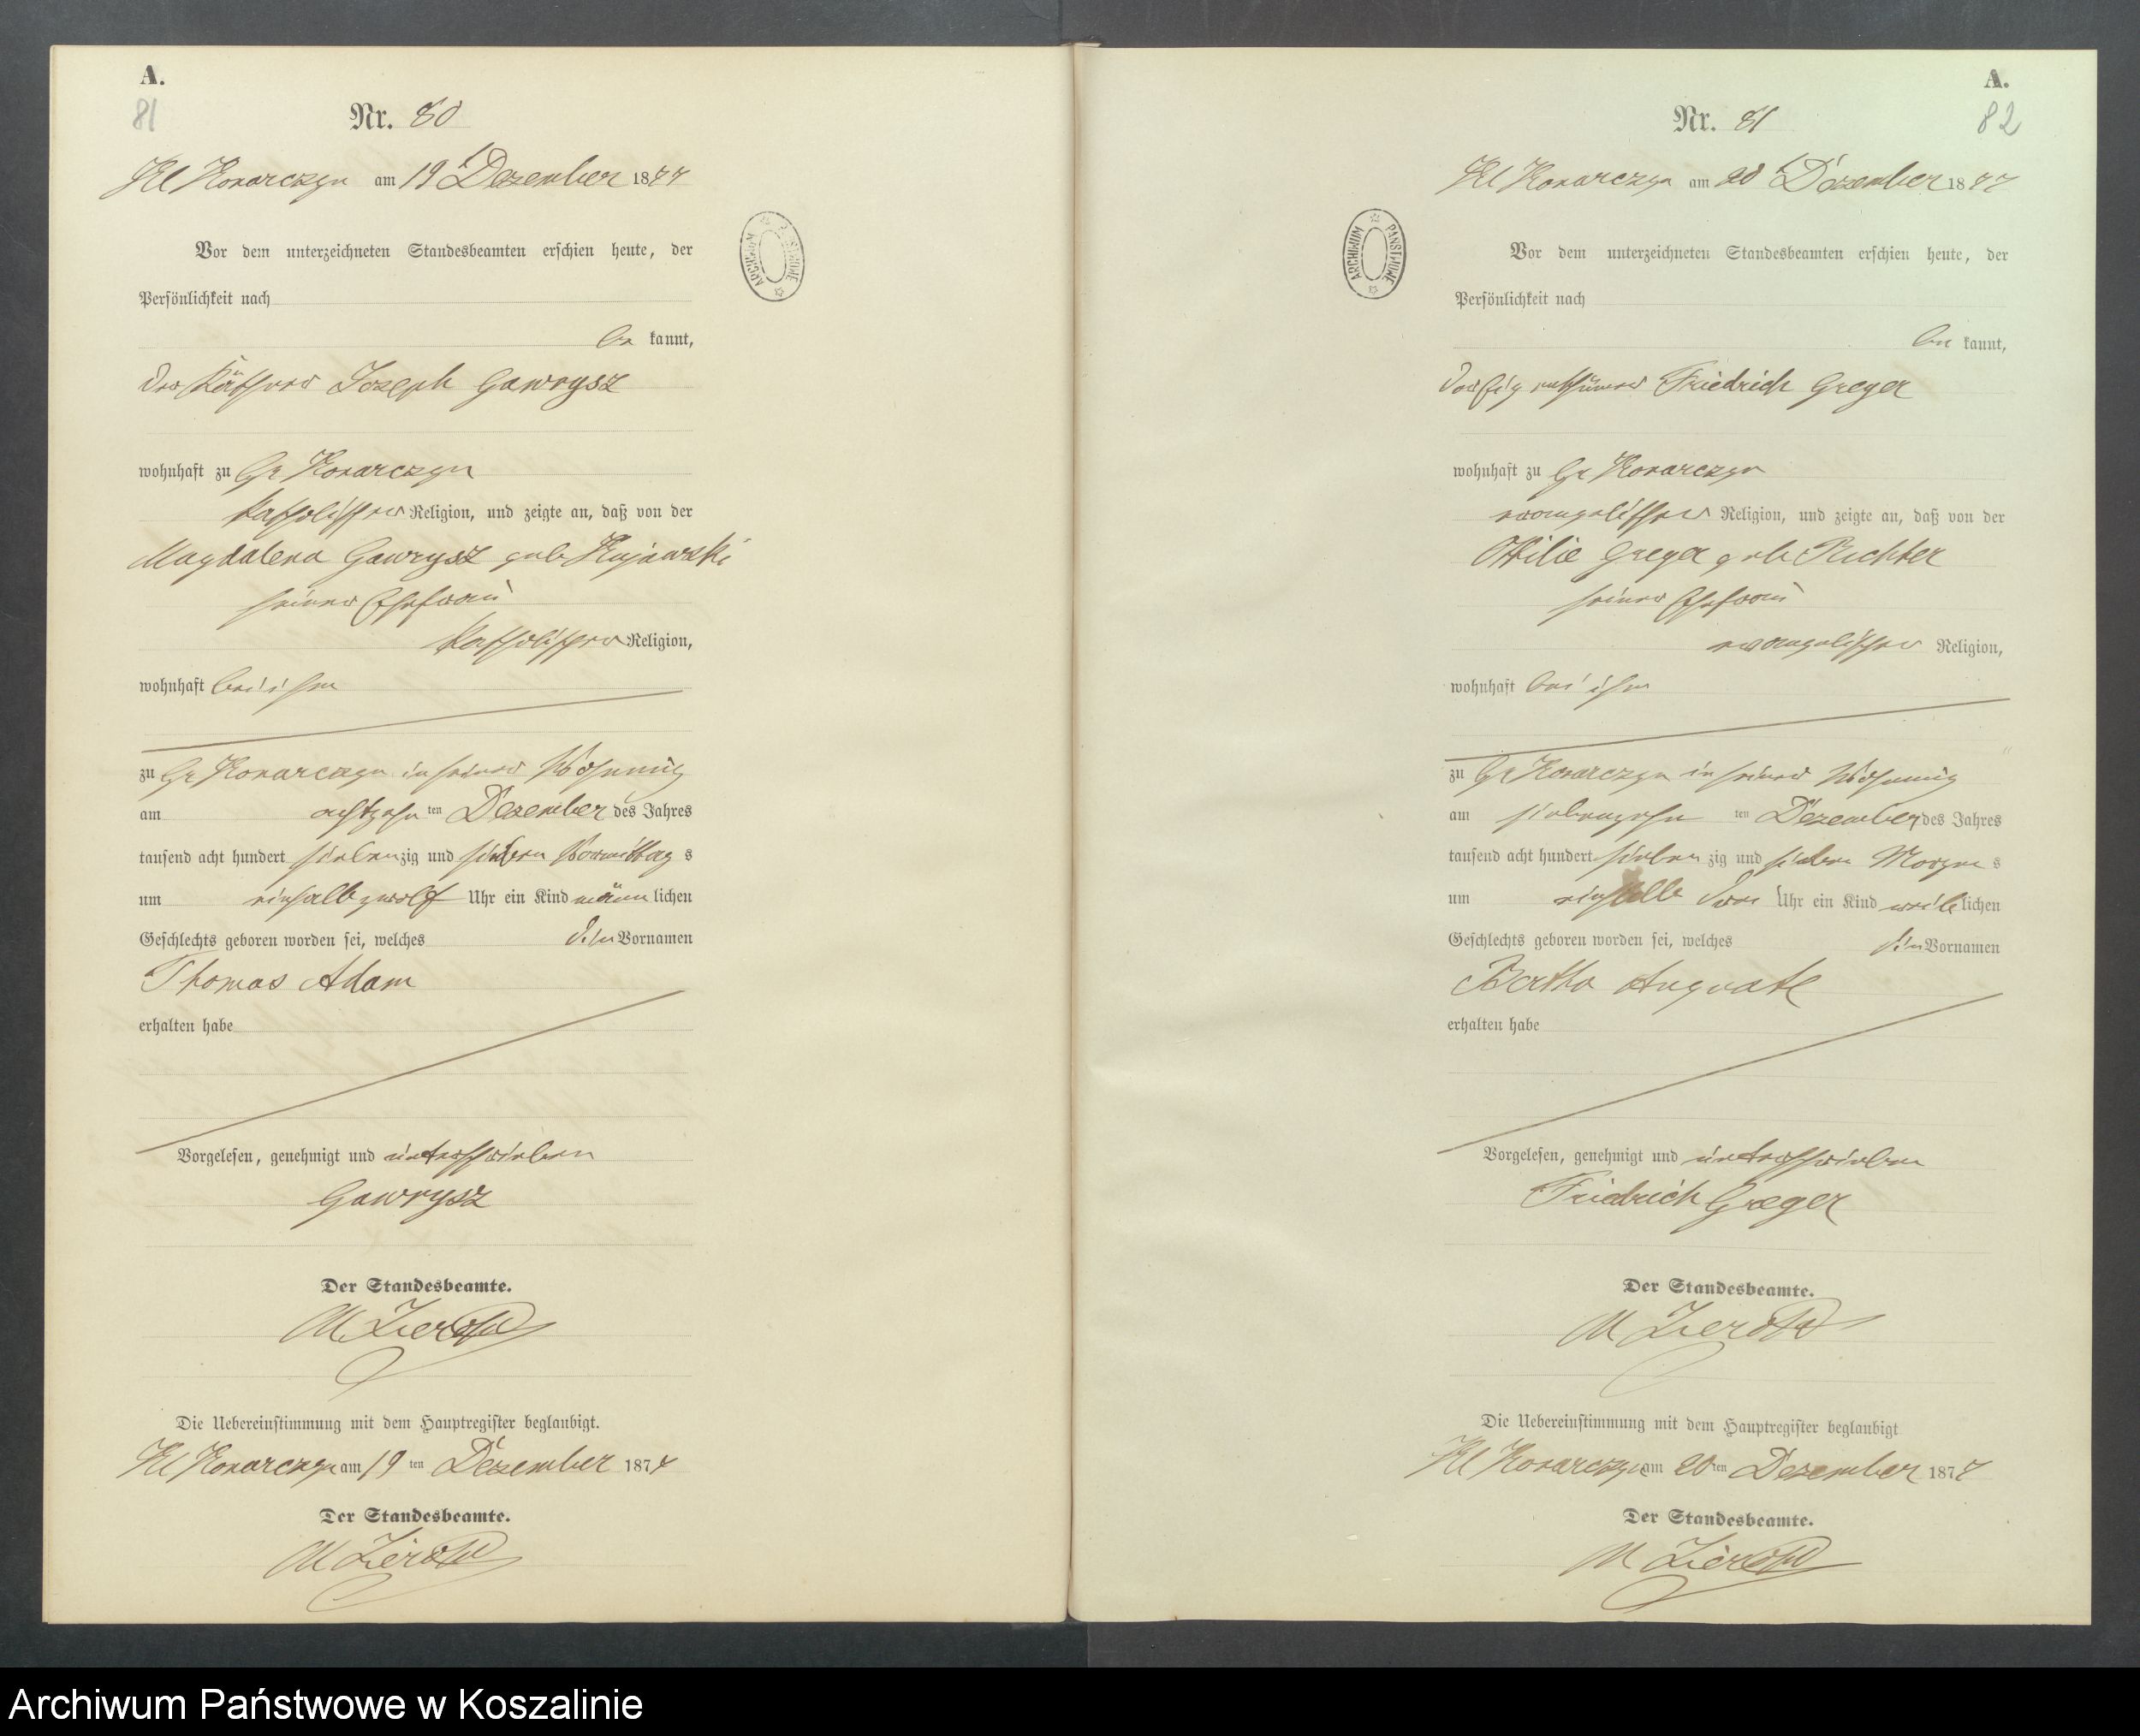 A.
81
Nr. 80
Kl Konarczyn am 19 t Dezember 1877
Vor dem unterzeichneten Standesbeamten erschien heute, der
Persönlichkeit nach
be kannt,
der Käthner Joseph Gawrysz
wohnhaft zu Gr Konarczyn
katholischer Religion, und zeigte an, daß von der
Magdalena Gawrysz geb Kujawski
seiner Ehefrau
katholischer Religion,
wohnhaft bei ihm
zu Gr Konarczyn in seiner Wohnung
am achtzehn ten Dezember des Jahres
tausend acht hundert siebenzig und sieben Vormittag s
um einhalb zwölf Uhr ein Kind männ lichen
Geschlechts geboren worden sei, welches die Vornamen
Thomas Adam
erhalten habe
Vorgelesen, genehmigt und unterschrieben
Gawrysz
Der Standesbeamte.
Die Uebereinstimmung mit dem Hauptregister beglaubigt.
Kl Konarczyn am 19 ten Dezember 1877
Der Standesbeamte.
ARCHIWUM PAŃSTWOWE
A.
82
Nr. 81
Kl Konarczyn am 20 t Dezember 1877
Vor dem unterzeichneten Standesbeamten erschien heute, der
Persönlichkeit nach
be kannt,
Friedrich Greger
wohnhaft zu Gr Konarczyn
evangelischer Religion, und zeigte an, daß von der
Ottilie Greger geb Richter
seiner Ehefrau
evangelischer Religion,
wohnhaft bei ihm
zu Gr Konarczyn in seiner Wohnung
am siebenzehn ten Dezember des Jahres
tausend acht hundert sieben zig und sieben Morgen s
um einhalb drei Uhr ein Kind weib lichen
Geschlechts geboren worden sei, welches die Vornamen
Bertha Auguste
erhalten habe
Vorgelesen, genehmigt und unterschrieben
Friedrich Greger
Der Standesbeamte.
Die Uebereinstimmung mit dem Hauptregister beglaubigt
Kl Konarczyn am 20 ten Dezember 1877
Der Standesbeamte.
ARCHIWUM PAŃSTWOWE
Archiwum Państwowe w Koszalinie